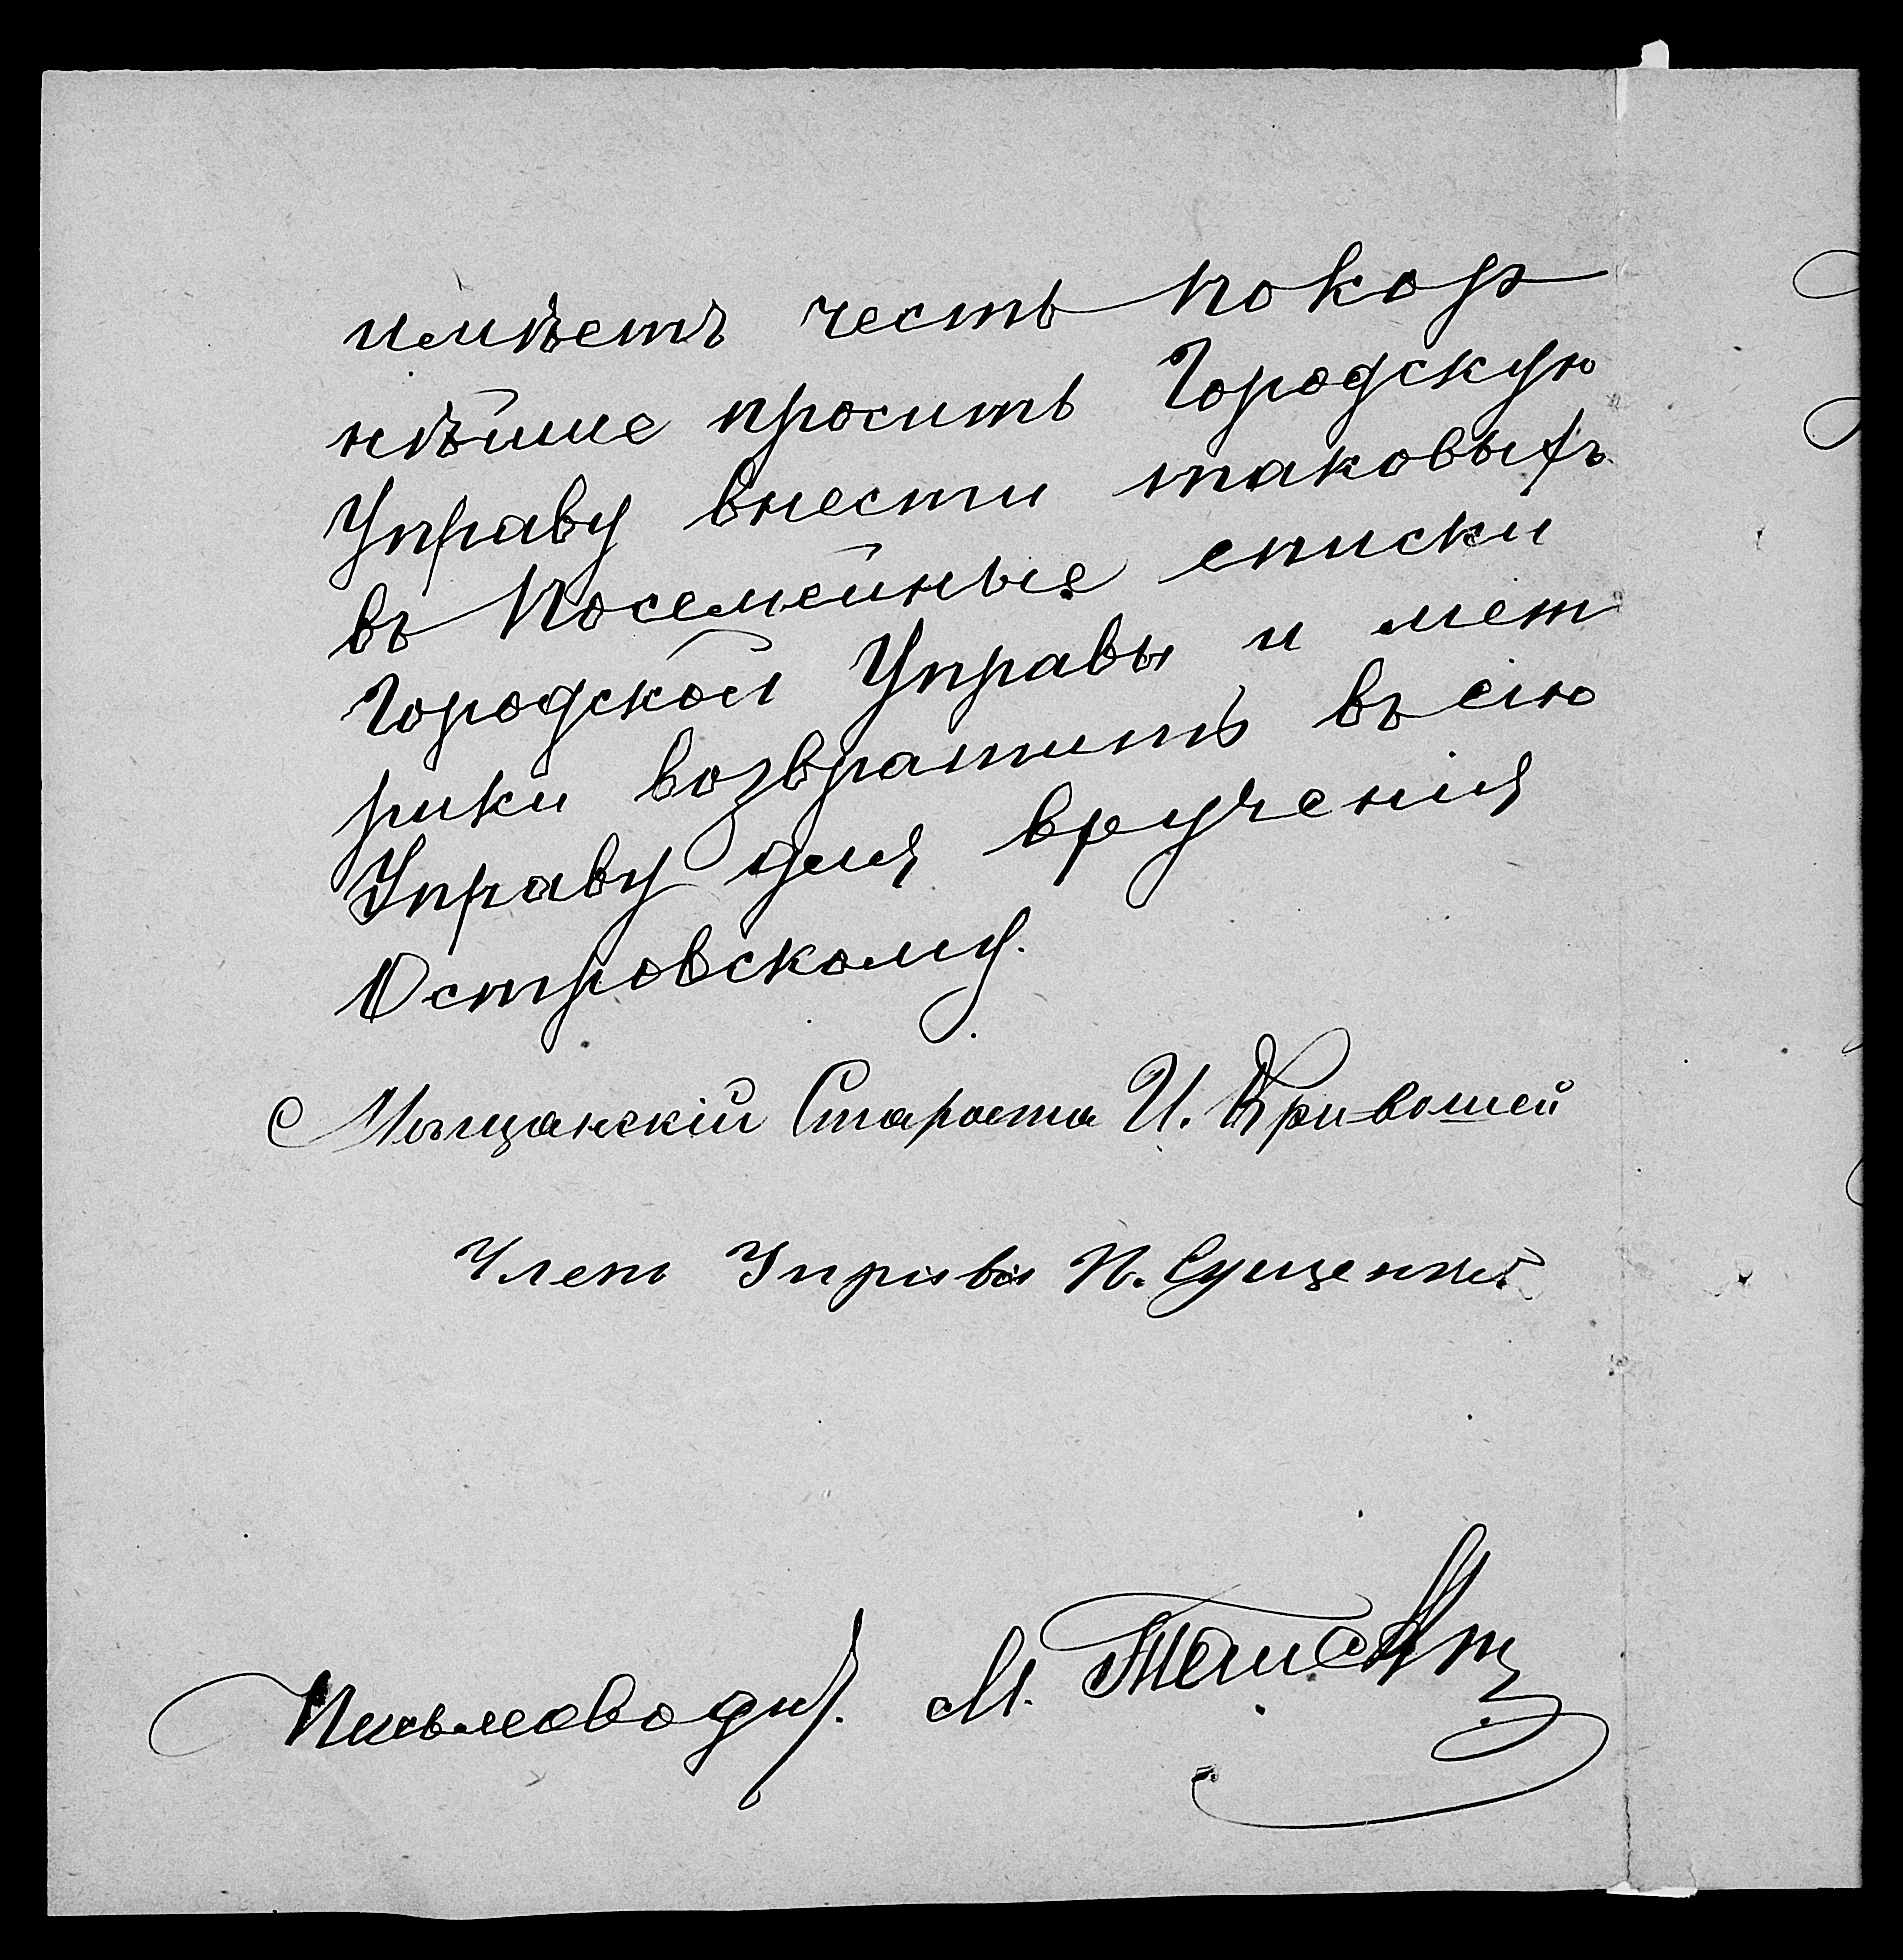 имѣетъ честь покор
нѣйше просить Городскую
Управу внести таковыхъ
въ Посемейные списки
Городской Управы и мет
рики возвратить въ сію
Управу для врученія
Островскому.
Мѣщанскій Староста И. Кривошей
Членъ Управы П. Сущенко
Письмоводит. М.